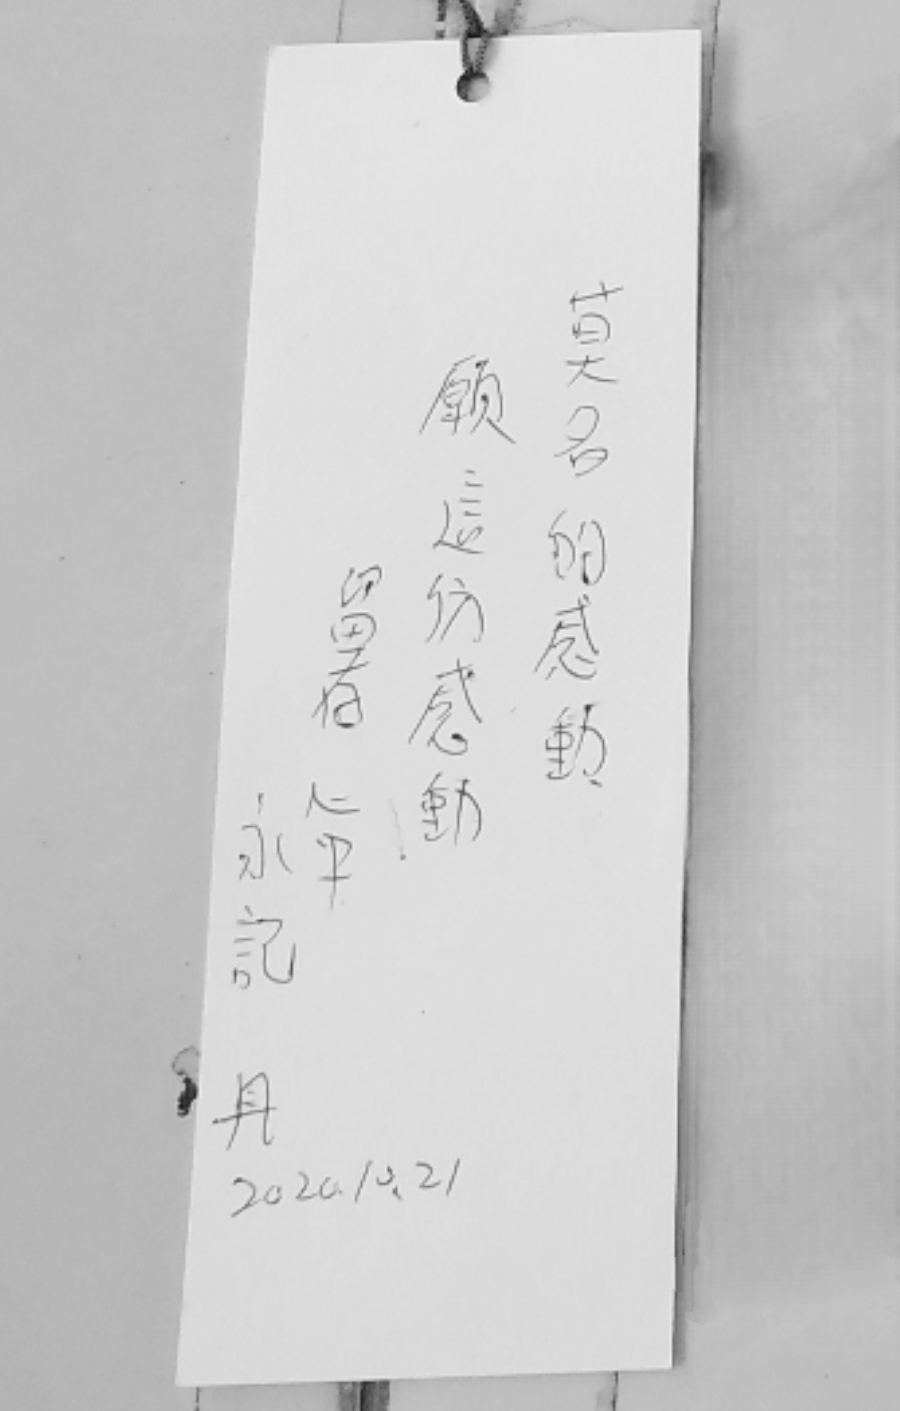 莫名的感動
願這份感動
留存心
永記
丹
2020.10.21